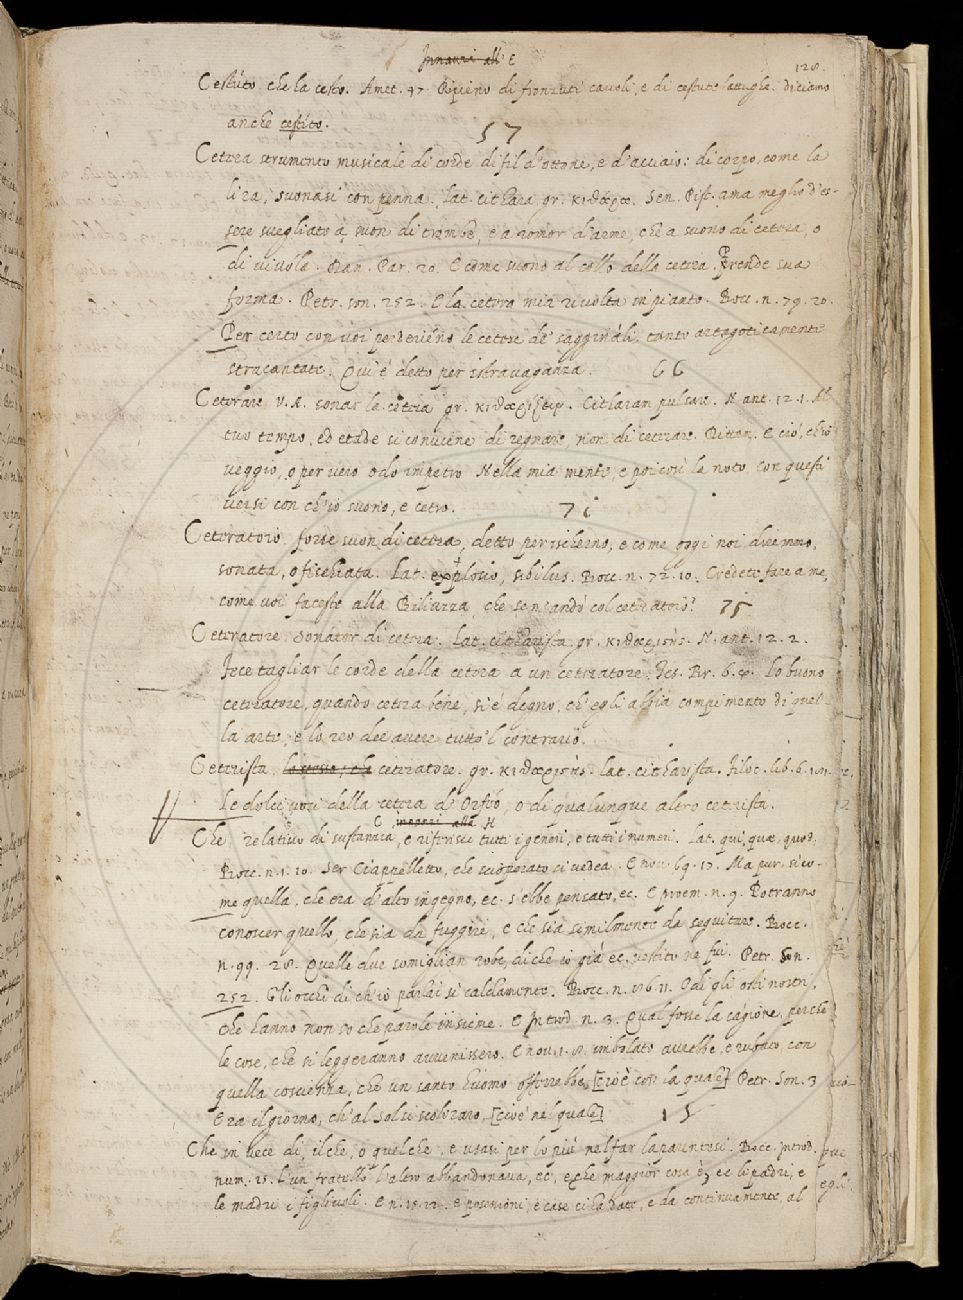 Innanzi all' E
128.
Cestuto che ha cesto. Amet. 47. Ripieno di fronzuti cauoli, e di cestute lattughe. diciamo
anche cestito.
57
Cetera strumento musicale di corde di fil d'ottone, e d'acciaio: di corpo, come la
lira, suonasi con penna. Lat. cithara gr. κιθάρα. Sen. Pist. ama meglio d'es-
sere suegliato a suon di trombe, e a romor d'arme, che a suono di cetera, o
di viuola. Dan. Par. 20. E come suono al collo della cetra Prende sua
forma. Petr. son. 252. E la cetera mia riuolta in pianto. Bocc. n. 79. 20.
Per certo con voi perderieno le cetere de' sagginali, tanto artagoticamente
stracantate. Qui è detto per istrauaganza. 66
Ceterare V. A. sonar la cetera gr. κιθαρίζειν. Citharam pulsare. N. ant. 12. 1. Al
tuo tempo, ed etade si conuiene di regnare, non di ceterare. Rim. E ciò, ch'io
veggio, o per vero odo impetro Nella mia mente, e poi così la noto con questi
versi con ch'io suono, e cetro. 71
Ceteratoio forse suon di cetera, detto per ischerno, e come oggi noi diremmo,
sonata, o fischiata. Lat. explosio, sibilus. Bocc. n. 72. 10. Credete fare a me,
come voi faceste alla Biliuzza, che se n'andò col ceteratoio? 75
Ceteratore. Sonator di cetera. Lat. citharista. gr. κιθαριστής. N. ant. 12. 2.
Fece tagliar le corde della cetera a un ceteratore. Tes. Br. 6. Lo buono
ceteratore, quando cetera bene, si è degno, ch'egli abbia compimento di quel-
la arte, e lo reo dee auere tutto 'l contrario.
Ceterista. lo stesso, che ceteratore. gr. κιθαριστής. lat. citharista. Filoc. lib. 6. 101.
Le dolci voci della cetera d'Orfeo, o di qualunque altro ceterista.
C innanzi alla H
Che relatiuo di sustanza, e riferisce tutti i generi, e tutti i numeri. Lat. qui, quae, quod.
Bocc. n. 1. 10. Ser Ciappelletto, che scioperato si vedea. E nou. 69. 17. Ma pur, sico-
me quella, che era d'alto ingegno, ec. s'ebbe pensato, ec. E proem. n. 9. Potranno
conoscer quello, che sia da fuggire, e che sia similmente da seguitare. Bocc.
n. 99. 28. Quelle due somiglian robe, di che io già ec. vestito ne fui. Petr. Son.
252. Gli occhi di ch'io parlai sì caldamente. Bocc. n. 16. 11. Odi gli osti nostri,
che hanno non so che parole insieme. E Introd. n. 3. Qual fosse la cagione, perche
le cose, che si leggeranno auuenissero. E nou. 1. 8. imbolato aurebbe, e rubato con
quella coscienza, che un santo huomo offerrebbe, [cioè con la quale] Petr. Son. 3
Era il giorno, ch'al sol si scoloraro, [cioè nel quale] 15
Che in vece di, il che, o qualche, e usasi per lo più nel far la parentesi. Bocc. Introd.
num. 15. L'un fratello l'altro abbandonaua, ec. e che maggior cosa è, ec. li padri, e
le madri i figliuoli. E n. 15. 12. e possessioni, e case ci ha date, e da continuamente, al